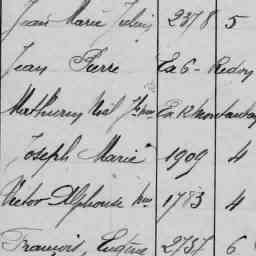 Jean Marie Julien 2378 5
Jean Pierre Ex 6- Redon
Mathurin Noël Ex 12 Montauban
Joseph Marie 1909 4
Victor Alphonse 1783 4
François, Eugène 2757 6